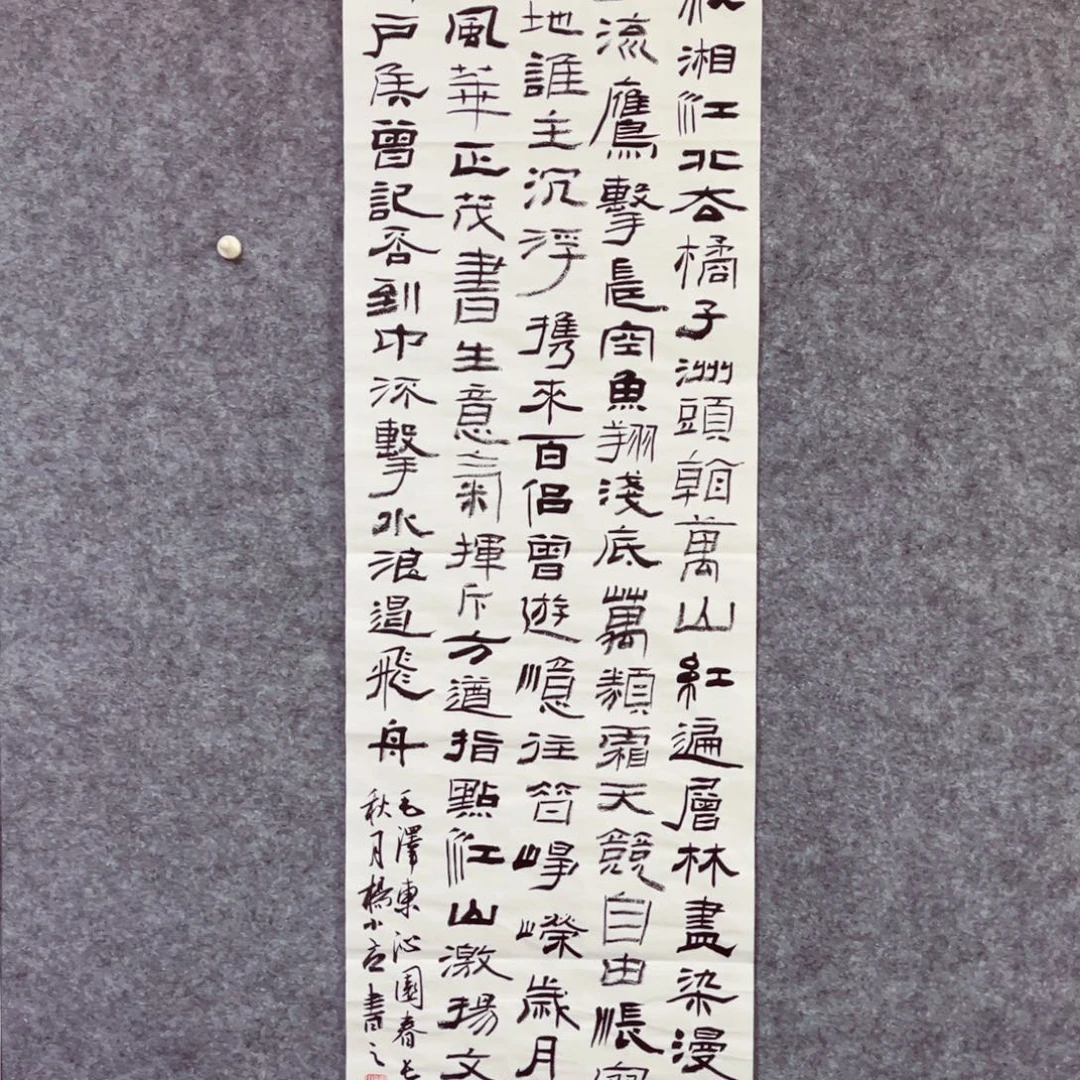 湘江北去橘子洲頭看萬山紅遍層林盡染漫
流鷹擊長空魚翔淺底萬類霜天競自由悵
地誰主沉浮携來百侣曾遊憶往昔崢嶸歲月
風華正茂書生意氣揮斥方遒指點江山激揚文
户侯曾記否到中流擊水浪遏飛舟
毛澤東沁園春長
秋月楊小書之